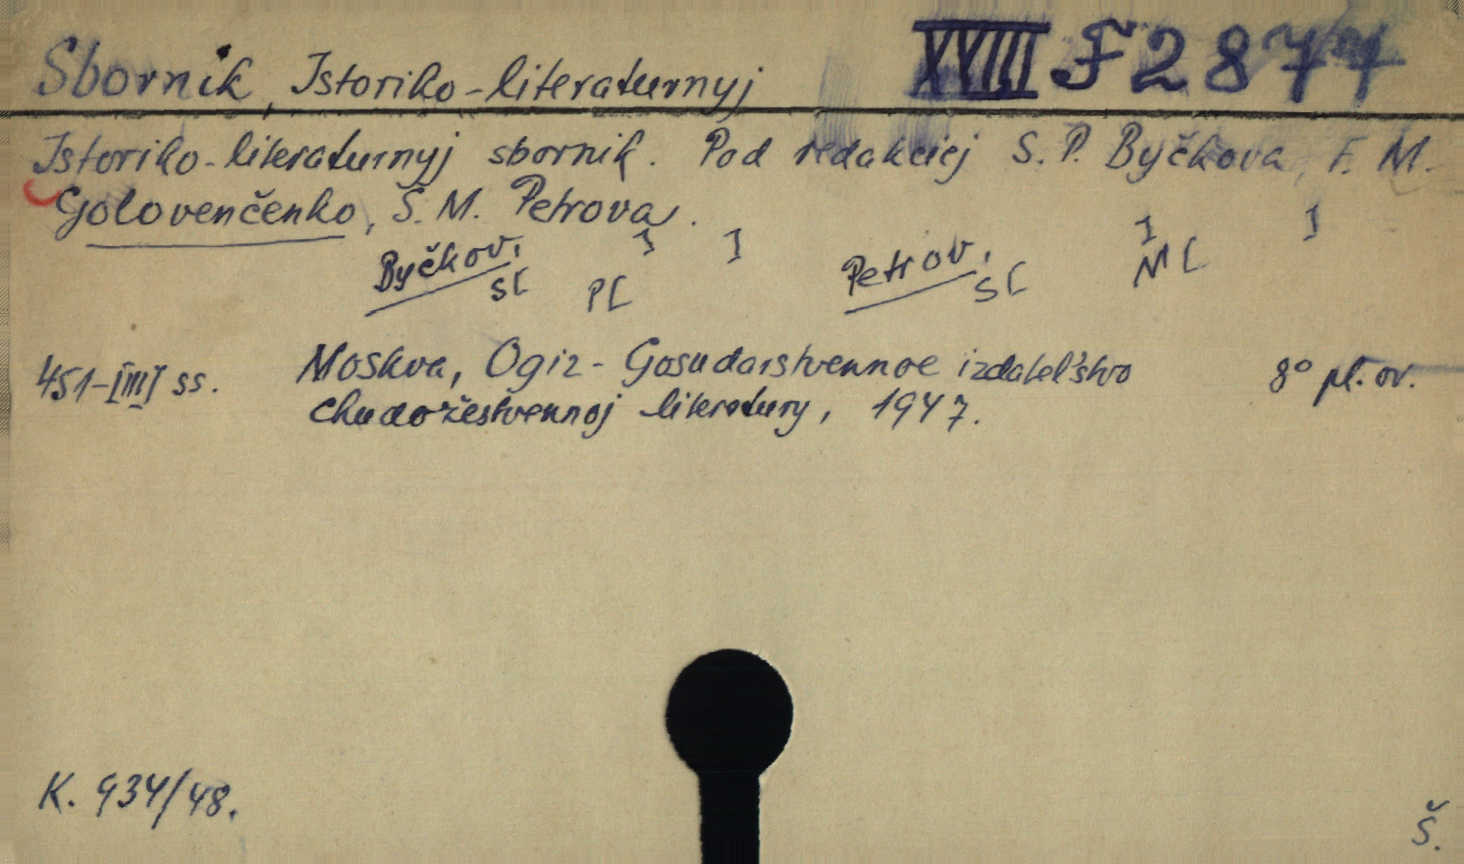 Sborník, Istoriko-literaturnyj XVIII F 2877
Istoriko-literaturnyj sbornik. Pod redakciej S. P. Byčkova, F. M.
Golovenčenko, S. M. Petrova.
Byčkov, S[ ] P[ ] Petrov, S[ ] M[ ]
451-[III] ss. Moskva, Ogiz - Gosudarstvennoe izdatel'stvo 8° pl. ov.
chudožestvennoj literatury, 1947.
K. 934/48.
Š.